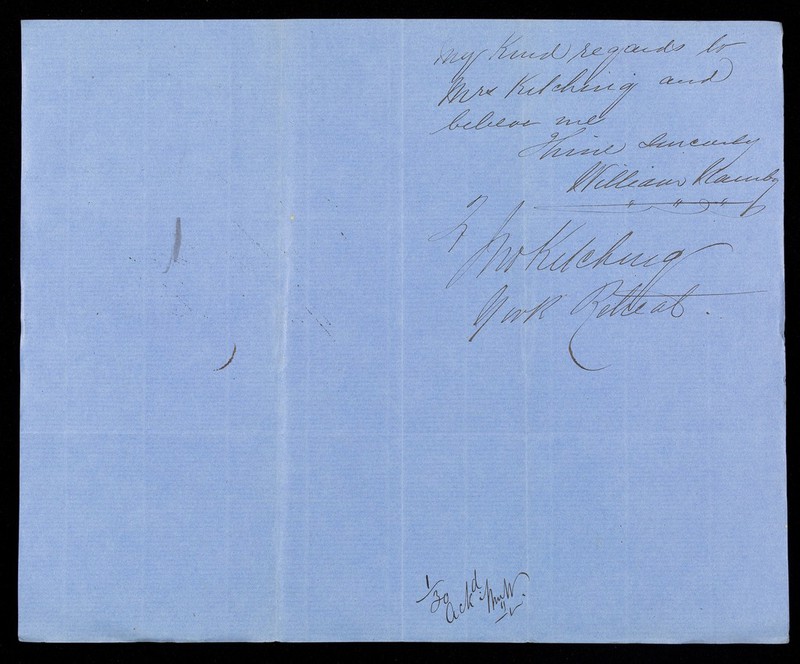 my Kind regards to
Mrs Kitching and
believe me
Thine Sincerely
William
To Jno Kitching
York Retreat.
1/30 Ackd